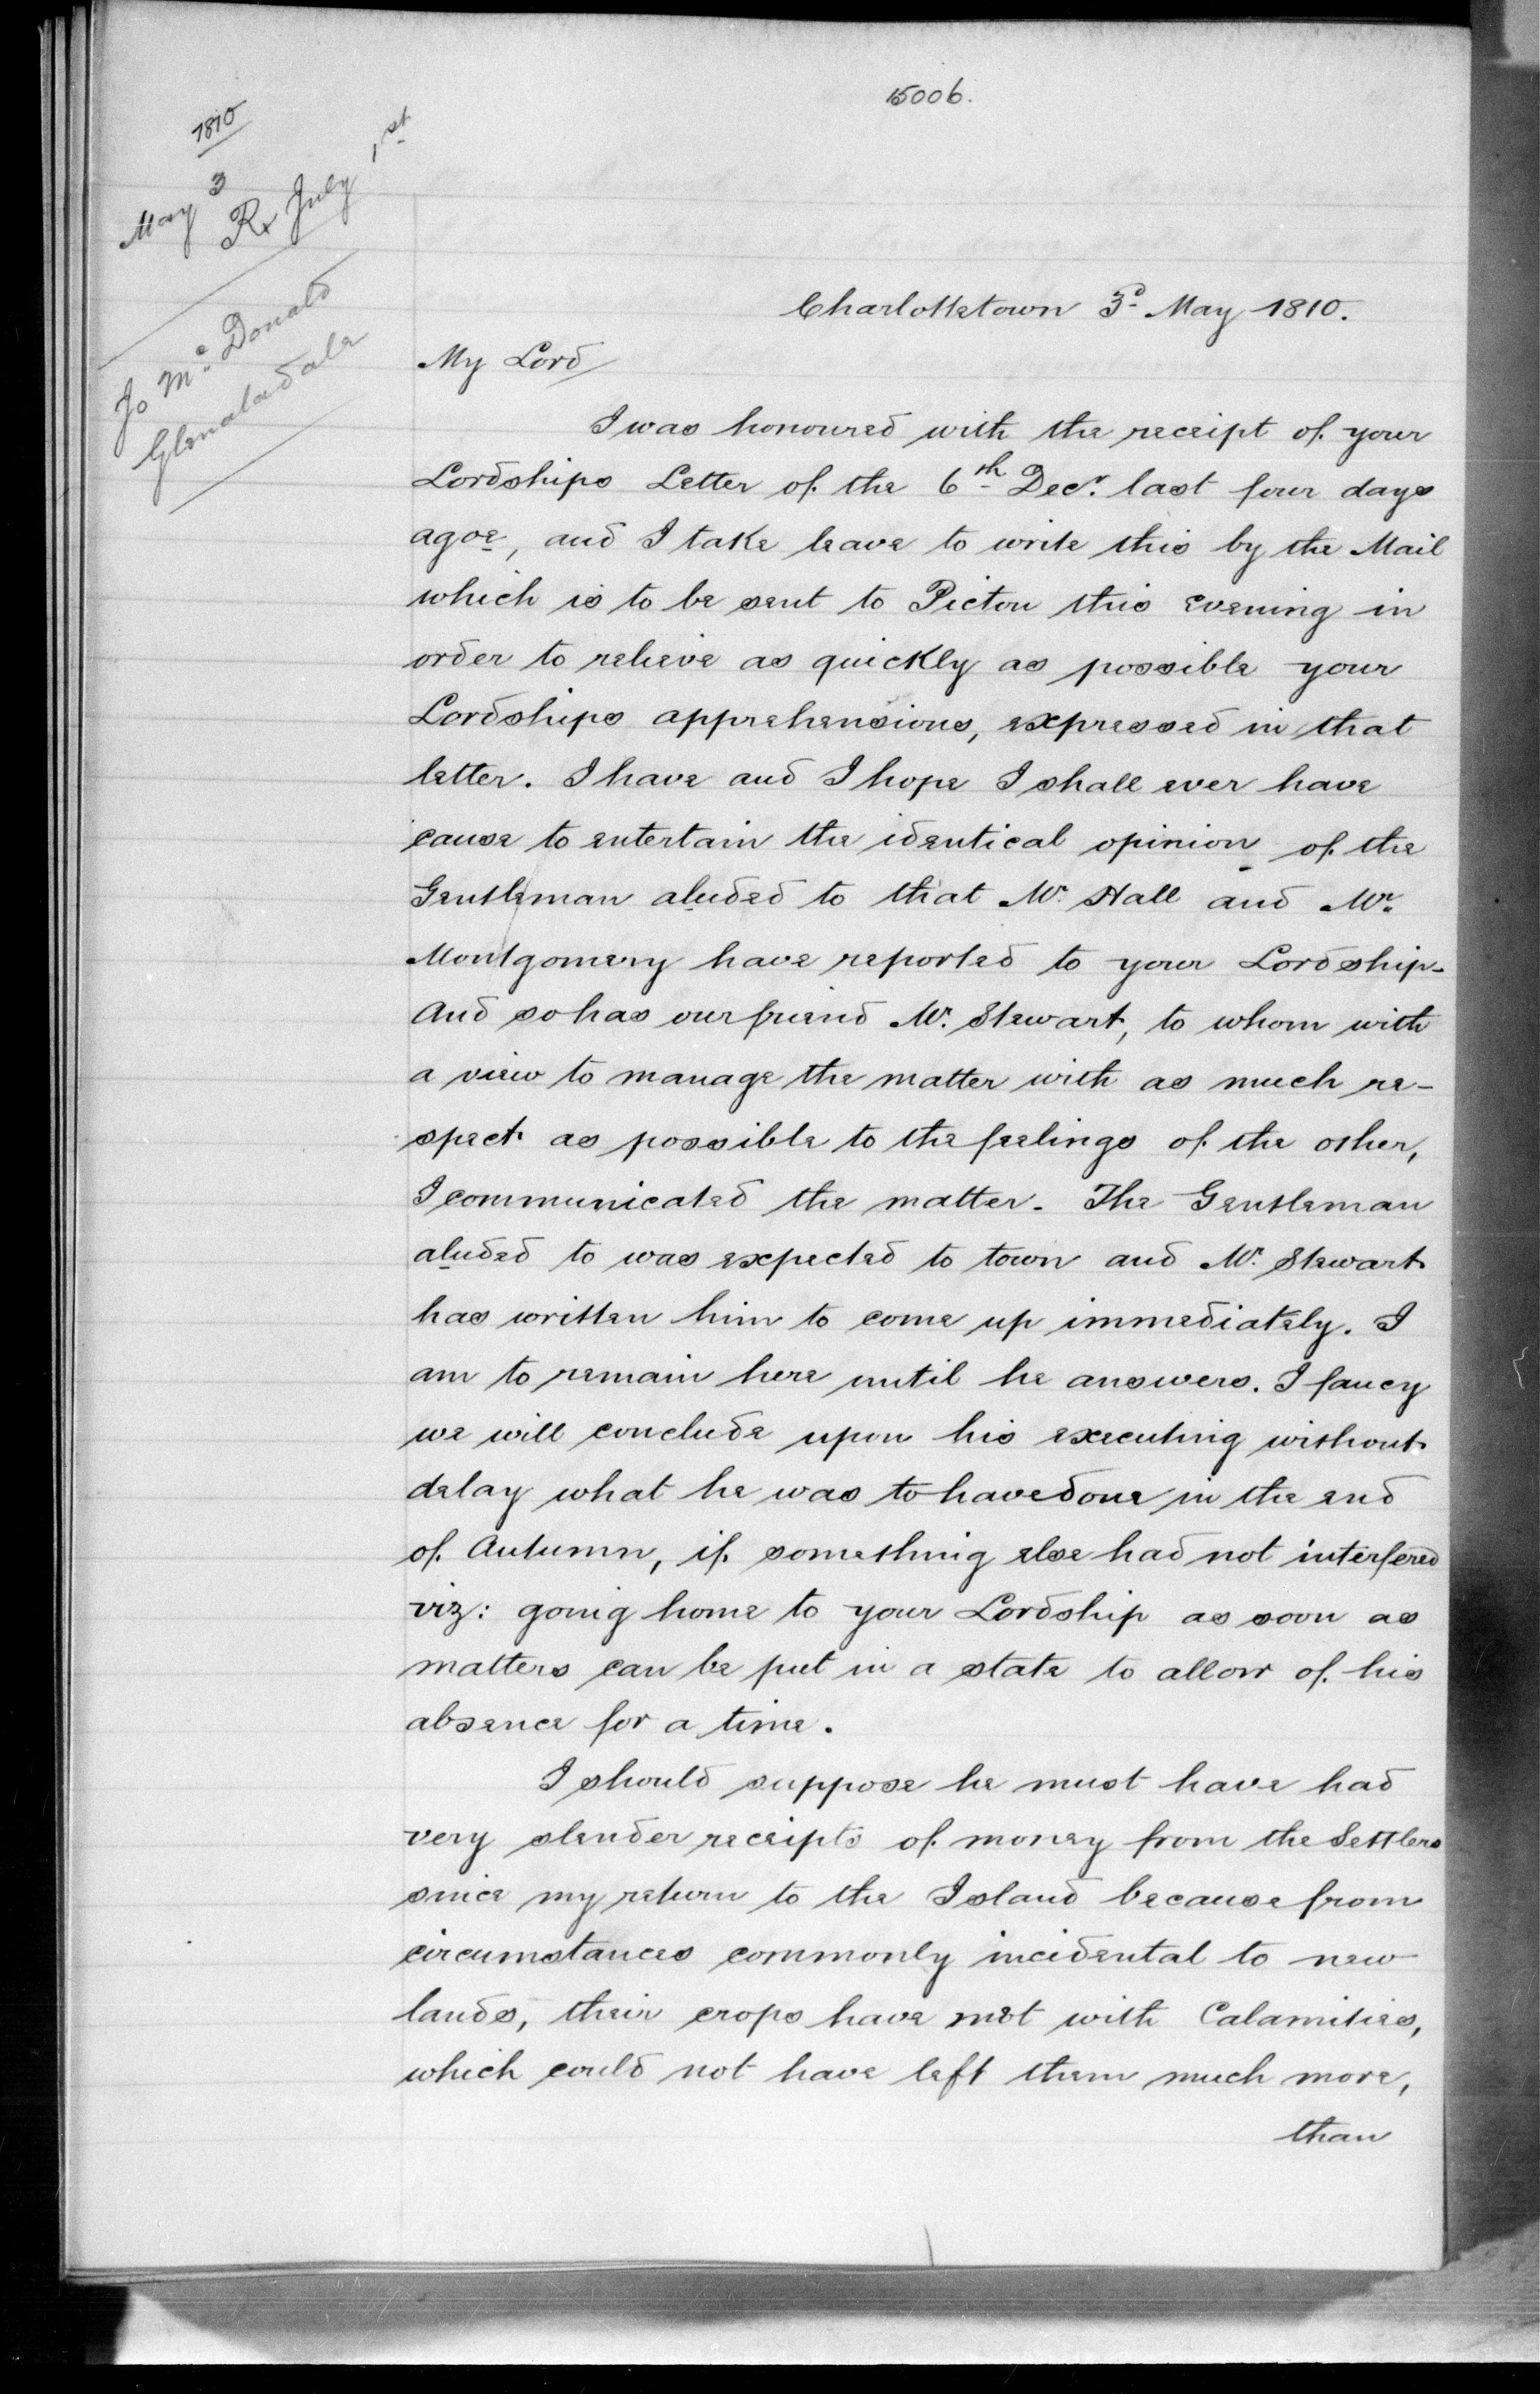 15006.
1810
May 3
Rx July 1st
Jo Mc Donald
Glenaladale
Charlottetown 3d May 1810.
My Lord
I was honoured with the receipt of your
Lordships Letter of the 6th Decr. last four days
agoe, and I take leave to write this by the Mail
which is to be sent to Pictou this evening in
order to relieve as quickly as possible your
Lordships apprehensions, expressed in that
letter. I have and I hope I shall ever have
cause to entertain the identical opinion of the
Gentleman aluded to that Mr. Hall and Mr.
Montgomery have reported to your Lordship-
And so has our friend Mr. Stewart, to whom with
a view to manage the matter with as much re-
spect as possible to the feelings of the other,
I communicated the matter. The Gentleman
aluded to was expected to town and Mr. Stewart
has written him to come up immediately. I
am to remain here until he answers. I fancy
we will conclude upon his executing without
delay what he was to have done in the end
of Autumn, if something else had not interfered
viz: going home to your Lordship as soon as
matters can be put in a state to allow of his
absence for a time.
I should suppose he must have had
very slender receipts of money from the Settlers
since my return to the Island because from
circumstances commonly incidental to new
lands, their crops have met with Calamities,
which could not have left them much more,
than